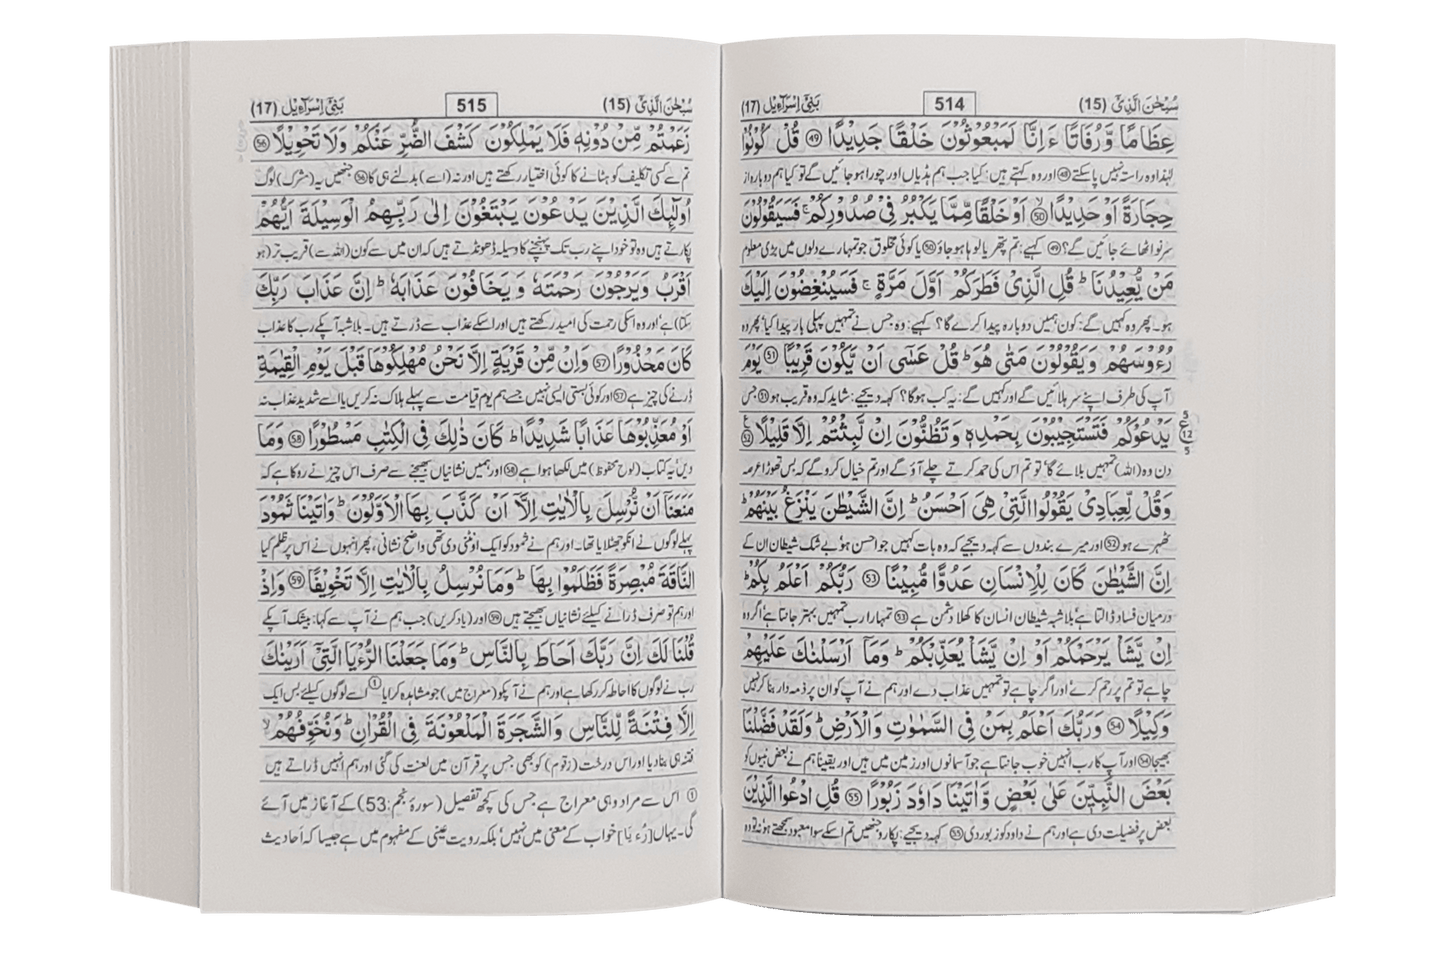 سُبْحٰنَ الَّذِیْٓ (15)
514
بَنِیْٓ اِسْرَآءِیْل (17)
عِظَامًا وَّرُفَاتًا ءَاِنَّا لَمَبْعُوْثُوْنَ خَلْقًا جَدِیْدًا ﴿49﴾ قُلْ كُوْنُوْا
لہٰذا وہ راستہ نہیں پاسکتے ﴿48﴾ اور وہ کہتے ہیں: کیا جب ہم ہڈیاں اور چورا ہو جائیں گے تو کیا ہم دوبارہ از
حِجَارَةً اَوْ حَدِیْدًا ﴿50﴾ اَوْ خَلْقًا مِّمَّا یَكْبُرُ فِیْ صُدُوْرِكُمْ ۚ فَسَیَقُوْلُوْنَ
سرنو اٹھائے جائیں گے؟ ﴿49﴾ کہیے: تم پتھر یا لوہا ہو جاؤ ﴿50﴾ یا کوئی مخلوق جو تمہارے دلوں میں بڑی معلوم
مَنْ یُّعِیْدُنَا ؕ قُلِ الَّذِیْ فَطَرَكُمْ اَوَّلَ مَرَّةٍ ۚ فَسَیُنْغِضُوْنَ اِلَیْكَ
ہو۔ پھر وہ کہیں گے: کون ہمیں دوبارہ پیدا کرے گا؟ کہیے: وہ جس نے تمہیں پہلی بار پیدا کیا، پھر وہ
رُءُوْسَهُمْ وَیَقُوْلُوْنَ مَتٰی هُوَ ؕ قُلْ عَسٰۤی اَنْ یَّكُوْنَ قَرِیْبًا ﴿51﴾ یَوْمَ
آپ کی طرف اپنے سر ہلائیں گے اور کہیں گے: یہ کب ہوگا؟ کہہ دیجیے: شاید کہ وہ قریب ہو ﴿51﴾ جس
یَدْعُوْكُمْ فَتَسْتَجِیْبُوْنَ بِحَمْدِهٖ وَتَظُنُّوْنَ اِنْ لَّبِثْتُمْ اِلَّا قَلِیْلًا ﴿52﴾ ع
5
ع
12
5
دن وہ (اللہ) تمہیں بلائے گا، تو تم اس کی حمد کرتے چلے آؤ گے اور تم خیال کرو گے کہ بس تھوڑا عرصہ
وَقُلْ لِّعِبَادِیْ یَقُوْلُوا الَّتِیْ هِیَ اَحْسَنُ ؕ اِنَّ الشَّیْطٰنَ یَنْزَغُ بَیْنَهُمْ ؕ
ٹھہرے ہو ﴿52﴾ اور میرے بندوں سے کہہ دیجیے کہ وہ بات کہیں جو احسن ہو، بے شک شیطان ان کے
اِنَّ الشَّیْطٰنَ كَانَ لِلْاِنْسَانِ عَدُوًّا مُّبِیْنًا ﴿53﴾ رَبُّكُمْ اَعْلَمُ بِكُمْ ؕ
درمیان فساد ڈالتا ہے، بلاشبہ شیطان انسان کا کھلا دشمن ہے ﴿53﴾ تمہارا رب تمہیں بہتر جانتا ہے، اگر وہ
اِنْ یَّشَاْ یَرْحَمْكُمْ اَوْ اِنْ یَّشَاْ یُعَذِّبْكُمْ ؕ وَمَاۤ اَرْسَلْنٰكَ عَلَیْهِمْ
چاہے تو تم پر رحم کرے، اور اگر چاہے تو تمہیں عذاب دے اور ہم نے آپ کو ان پر ذمہ دار بنا کر نہیں
وَكِیْلًا ﴿54﴾ وَرَبُّكَ اَعْلَمُ بِمَنْ فِی السَّمٰوٰتِ وَالْاَرْضِ ؕ وَلَقَدْ فَضَّلْنَا
بھیجا ﴿54﴾ اور آپ کا رب انہیں خوب جانتا ہے جو آسمانوں اور زمین میں ہیں اور یقیناً ہم نے بعض نبیوں کو
بَعْضَ النَّبِیّٖنَ عَلٰی بَعْضٍ وَّاٰتَیْنَا دَاوٗدَ زَبُوْرًا ﴿55﴾ قُلِ ادْعُوا الَّذِیْنَ
بعض پر فضیلت دی ہے اور ہم نے داود کو زبور دی ﴿55﴾ کہہ دیجیے: پکارو جنھیں تم اسکے سوا معبود سمجھتے ہو، تو وہ
سُبْحٰنَ الَّذِیْٓ (15)
515
بَنِیْٓ اِسْرَآءِیْل (17)
زَعَمْتُمْ مِّنْ دُوْنِهٖ فَلَا یَمْلِكُوْنَ كَشْفَ الضُّرِّ عَنْكُمْ وَلَا تَحْوِیْلًا ﴿56﴾
تم سے کسی تکلیف کو ہٹانے کا کوئی اختیار رکھتے ہیں اور نہ (اسے) بدلنے ہی کا ﴿56﴾ جنھیں یہ (مشرک) لوگ
اُولٰٓئِكَ الَّذِیْنَ یَدْعُوْنَ یَبْتَغُوْنَ اِلٰی رَبِّهِمُ الْوَسِیْلَةَ اَیُّهُمْ
پکارتے ہیں وہ تو خود اپنے رب تک پہنچنے کا وسیلہ ڈھونڈتے ہیں کہ ان میں سے کون (اللہ سے) قریب تر (ہو
اَقْرَبُ وَیَرْجُوْنَ رَحْمَتَهٗ وَیَخَافُوْنَ عَذَابَهٗ ؕ اِنَّ عَذَابَ رَبِّكَ
سکتا) ہے، اور وہ اسکی رحمت کی امید رکھتے ہیں اور اسکے عذاب سے ڈرتے ہیں۔ بلاشبہ آپکے رب کا عذاب
كَانَ مَحْذُوْرًا ﴿57﴾ وَاِنْ مِّنْ قَرْیَةٍ اِلَّا نَحْنُ مُهْلِكُوْهَا قَبْلَ یَوْمِ الْقِیٰمَةِ
ڈرنے کی چیز ہے ﴿57﴾ اور کوئی بستی ایسی نہیں جسے ہم یوم قیامت سے پہلے ہلاک نہ کریں یا اسے شدید عذاب نہ
اَوْ مُعَذِّبُوْهَا عَذَابًا شَدِیْدًا ؕ كَانَ ذٰلِكَ فِی الْكِتٰبِ مَسْطُوْرًا ﴿58﴾ وَمَا
دیں، یہ کتاب (لوح محفوظ) میں لکھا ہوا ہے ﴿58﴾ اور ہمیں نشانیاں بھیجنے سے صرف اس چیز نے روکا ہے کہ
مَنَعَنَاۤ اَنْ نُّرْسِلَ بِالْاٰیٰتِ اِلَّاۤ اَنْ كَذَّبَ بِهَا الْاَوَّلُوْنَ ؕ وَاٰتَیْنَا ثَمُوْدَ
پہلے لوگوں نے انکو جھٹلایا تھا۔ اور ہم نے ثمود کو ایک اونٹنی دی تھی واضح نشانی، پھر انہوں نے اس پر ظلم کیا
النَّاقَةَ مُبْصِرَةً فَظَلَمُوْا بِهَا ؕ وَمَا نُرْسِلُ بِالْاٰیٰتِ اِلَّا تَخْوِیْفًا ﴿59﴾ وَاِذْ
اور ہم تو صرف ڈرانے کیلئے نشانیاں بھیجتے ہیں ﴿59﴾ اور (یاد کریں) جب ہم نے آپ سے کہا: بیشک آپکے
قُلْنَا لَكَ اِنَّ رَبَّكَ اَحَاطَ بِالنَّاسِ ؕ وَمَا جَعَلْنَا الرُّءْیَا الَّتِیْۤ اَرَیْنٰكَ
رب نے لوگوں کا احاطہ کر رکھا ہے اور ہم نے آپکو (معراج میں) جو مشاہدہ کرایا ① اسے لوگوں کیلئے بس ایک
اِلَّا فِتْنَةً لِّلنَّاسِ وَالشَّجَرَةَ الْمَلْعُوْنَةَ فِی الْقُرْاٰنِ ؕ وَنُخَوِّفُهُمْ ۙ
فتنہ ہی بنا دیا اور اس درخت (زقوم) کو بھی جس پر قرآن میں لعنت کی گئی اور ہم انہیں ڈراتے ہیں
① اس سے مراد وہی معراج ہے جس کی کچھ تفصیل (سورۂ نجم:53) کے آغاز میں آئے
گی۔ یہاں [رُءْيَا] خواب کے معنی میں نہیں، بلکہ رویت عینی کے مفہوم میں ہے جیسا کہ اُحادیث